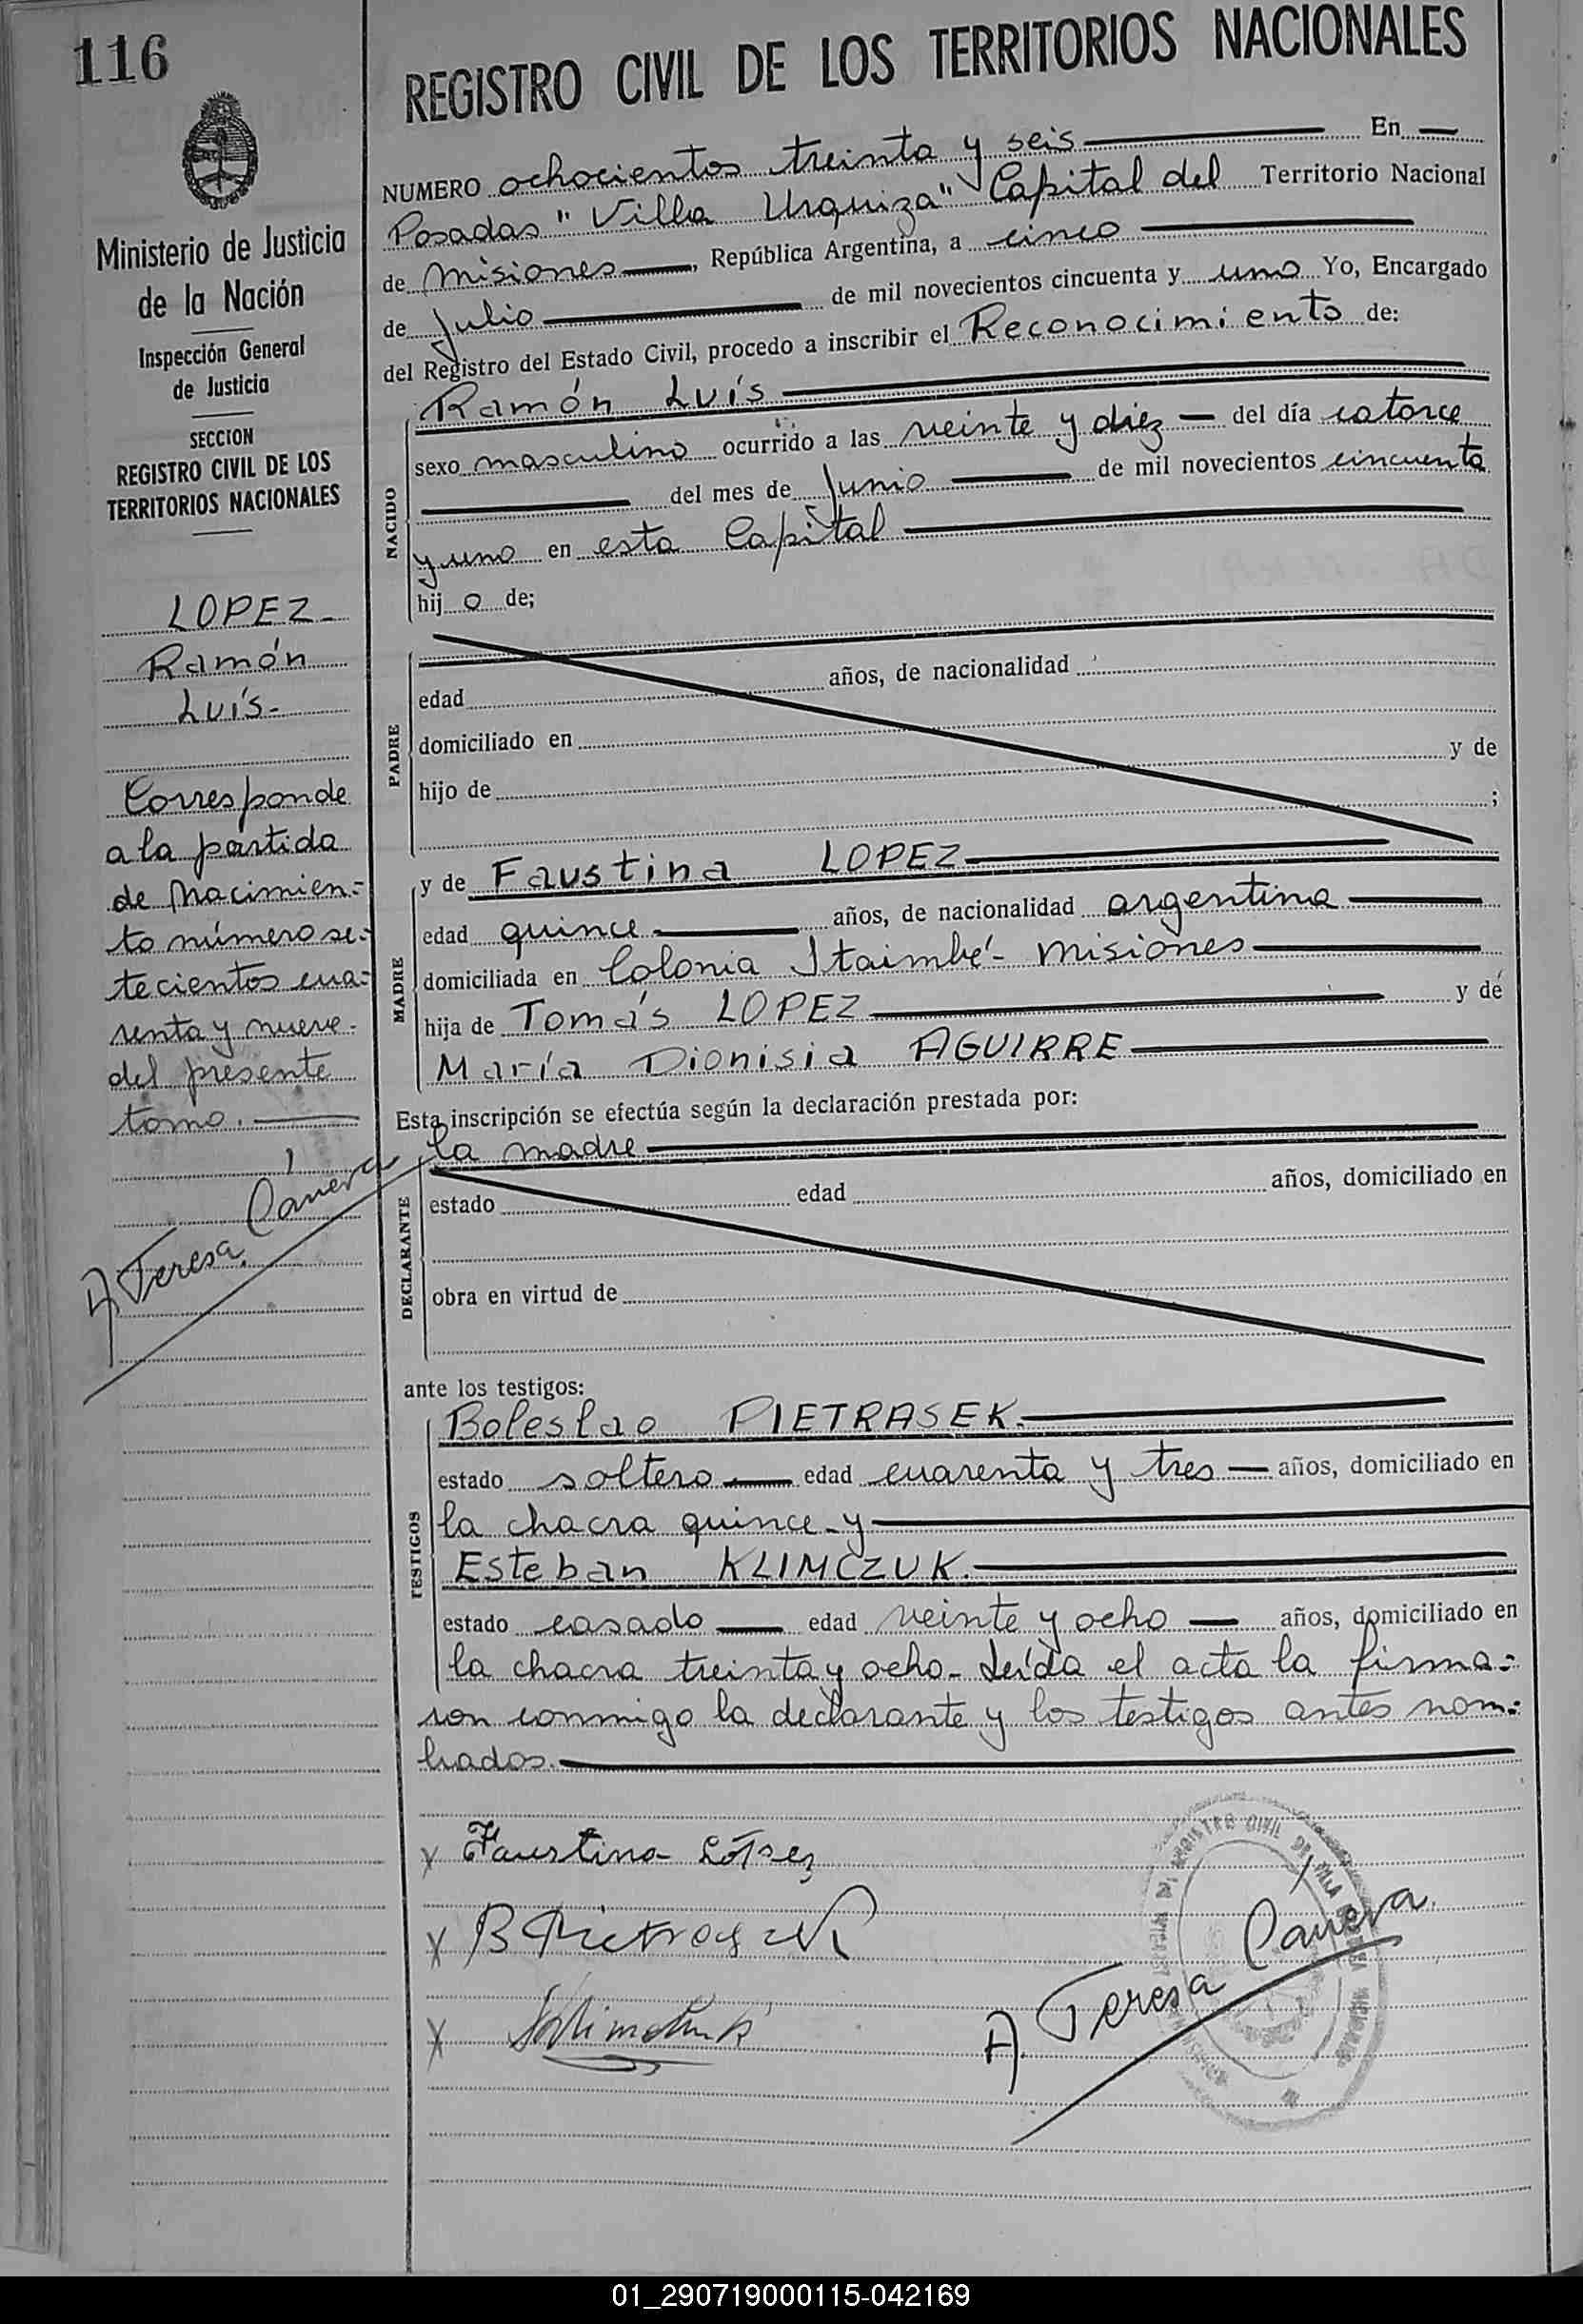 116
REGISTRO CIVIL DE LOS TERRITORIOS NACIONALES
Ministerio de Justicia
de la Nación
Inspección General
de Justicia
SECCION
REGISTRO CIVIL DE LOS
TERRITORIOS NACIONALES
LOPEZ-
Ramón
Luís-
Corresponde
a la partida
de Nacimien=
to número se=
tecientos cua=
renta y nueve
del presente
tomo.
A. Teresa Canева
NUMERO ochocientos treinta y seis En
Posadas "Villa Urquiza" Capital del Territorio Nacional
de Misiones, República Argentina, a cinco
de Julio de mil novecientos cincuenta y uno Yo, Encargado
del Registro del Estado Civil, procedo a inscribir el Reconocimiento de:
NACIDO
Ramón Luís
sexo masculino ocurrido a las veinte y diez del día catorce
del mes de Junio de mil novecientos cincuenta
y uno en esta Capital
hijo de;
PADRE
edad años, de nacionalidad
domiciliado en
hijo de y de
;
MADRE
y de Faustina LOPEZ
edad quince años, de nacionalidad argentina
domiciliada en Colonia Itaimbé- Misiones
hija de Tomás LOPEZ y de
María Dionisia AGUIRRE
Esta inscripción se efectúa según la declaración prestada por:
DECLARANTE
la madre
estado edad años, domiciliado en
obra en virtud de
ante los testigos:
TESTIGOS
Boleslao PIETRASEK.
estado soltero edad cuarenta y tres años, domiciliado en
la chacra quince-y
Esteban KLIMCZUK.
estado casado edad veinte y ocho años, domiciliado en
la chacra treinta y ocho- Leída el acta la firma=
ron conmigo la declarante y los testigos antes nom=
brados.
x Faustina López
x B Pietrasek
x
A. Teresa Caneva
01_290719000115-042169